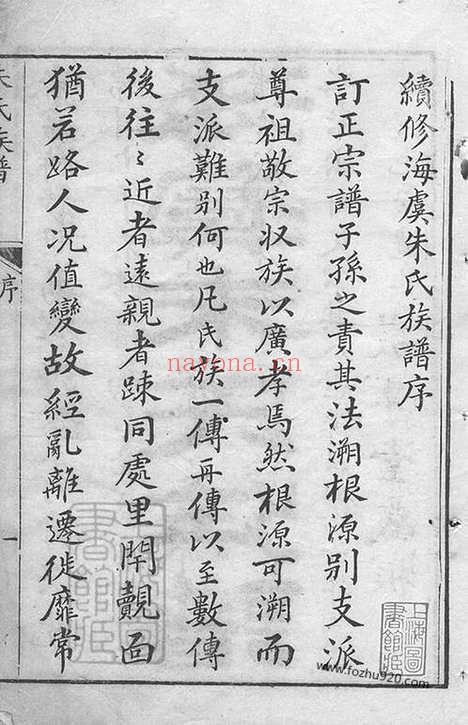 續修海虞朱氏族譜序
訂正宗譜子孫之責其法溯根源別支派
尊祖敬宗収族以廣孝焉然根源可溯而
支派難別何也凡氏族一傳再傳以至數傳
後往〻近者遠親者踈同處里閈覿面
猶若路人况值變故經亂離遷徙靡常
朱氏族譜
序
一
上海圖書館藏
上海圖書館藏
nayona.cn
www.fozhu920.com